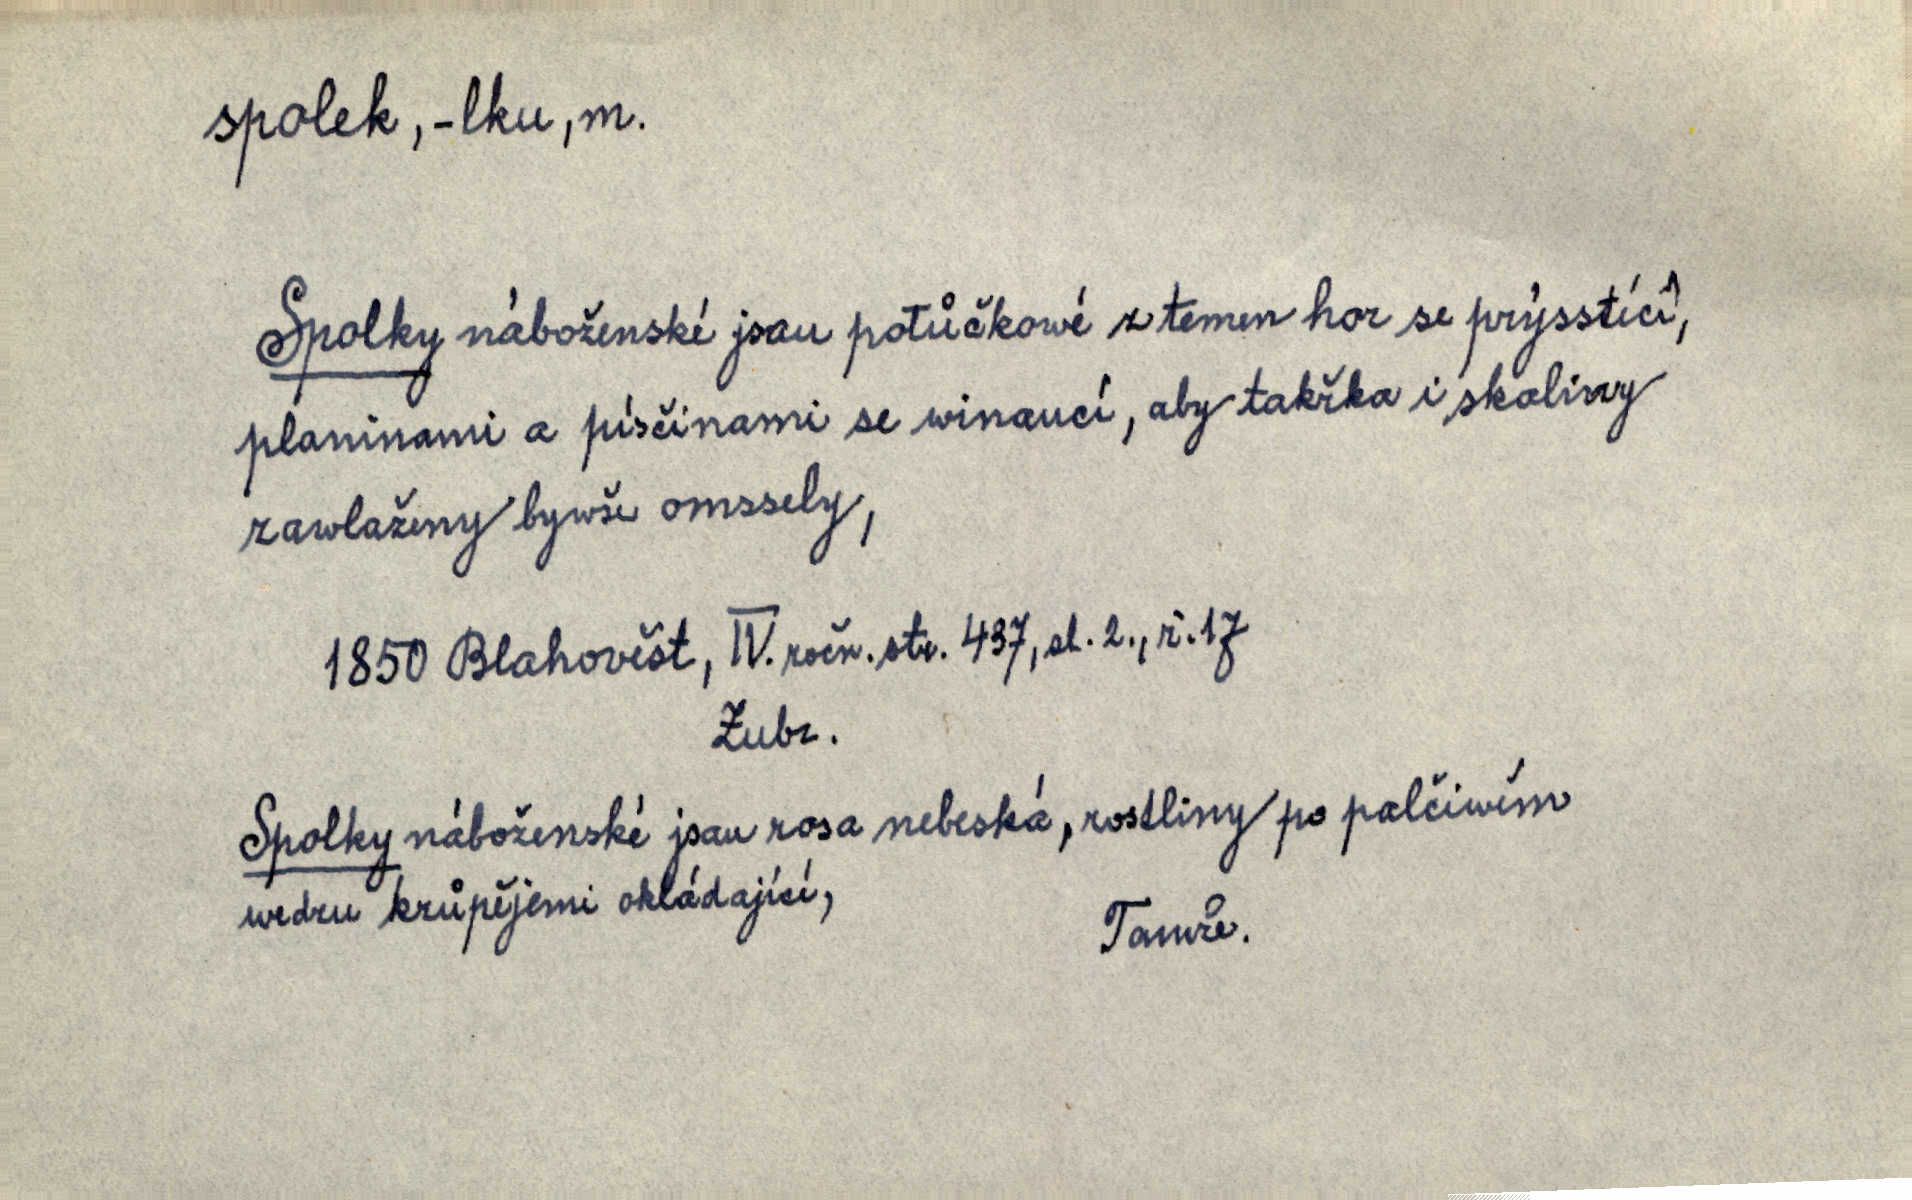 spolek, -lku, m.
Spolky náboženské jsau potůčkowé z temen hor se prýsstící,
planinami a písčinami se winaucí, aby takřka i skaliny
zawlaženy bywše omssely,
1850 Blahověst, IV. ročn. str. 437, sl. 2., ř. 17
Zubr.
Spolky náboženské jsau rosa nebeská, rostliny po palčiwém
wedru krůpějemi okládající,
Tamže.